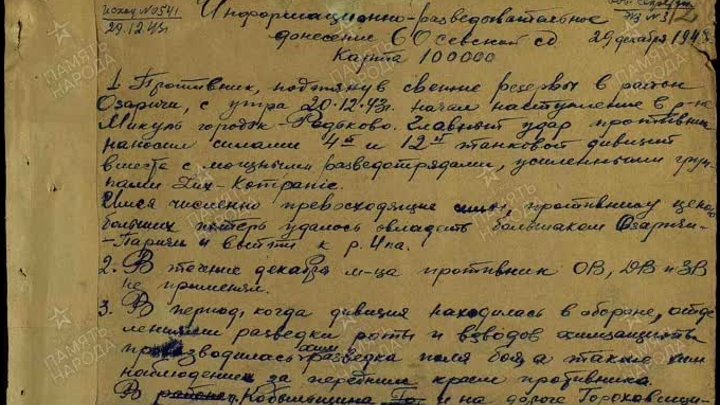 исход №0541
29.12.43г.
Информационно-разведовательное
донесение 60 севской сд 29 декабря 194
Карта 100000
1. Противник, подтянув свежие резервы в район
Озаричи, с утра 20.12.43г. начал наступление в р-не
Микуль городок-Радьково. Главный удар противник
наносил силами 4й и 12й танковой дивизий
вместе с мощными разведотрядами, усиленными груп-
пами
Имея численно превосходящие силы, противнику ценою
больших потерь удалось овладеть большаком Озаричи-
-Паричи и выйти к р. Ипа.
2. В течение декабря м-ца противник ОВ, ДВ и ЗВ
не применял.
3. В период, когда дивизия находилась в обороне, отде
лениями разведки роты и взводов химзащиты
производилась хим разведка поля боя, а также хим
наблюдение за передним краем противника.
В районе Кобыльщина и на дороге
ПАМЯТЬ
НАРОДА